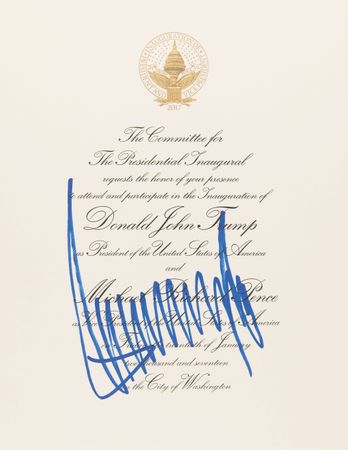 INAUGURATION OF PRESIDENT AND VICE PRESIDENT
2017
The Committee for
The Presidential Inaugural
requests the honor of your presence
to attend and participate in the Inauguration of
Donald John Trump
as President of the United States of America
and
Michael Richard Pence
as Vice President of the United States of America
on Friday, the twentieth of January
two thousand and seventeen
in the City of Washington